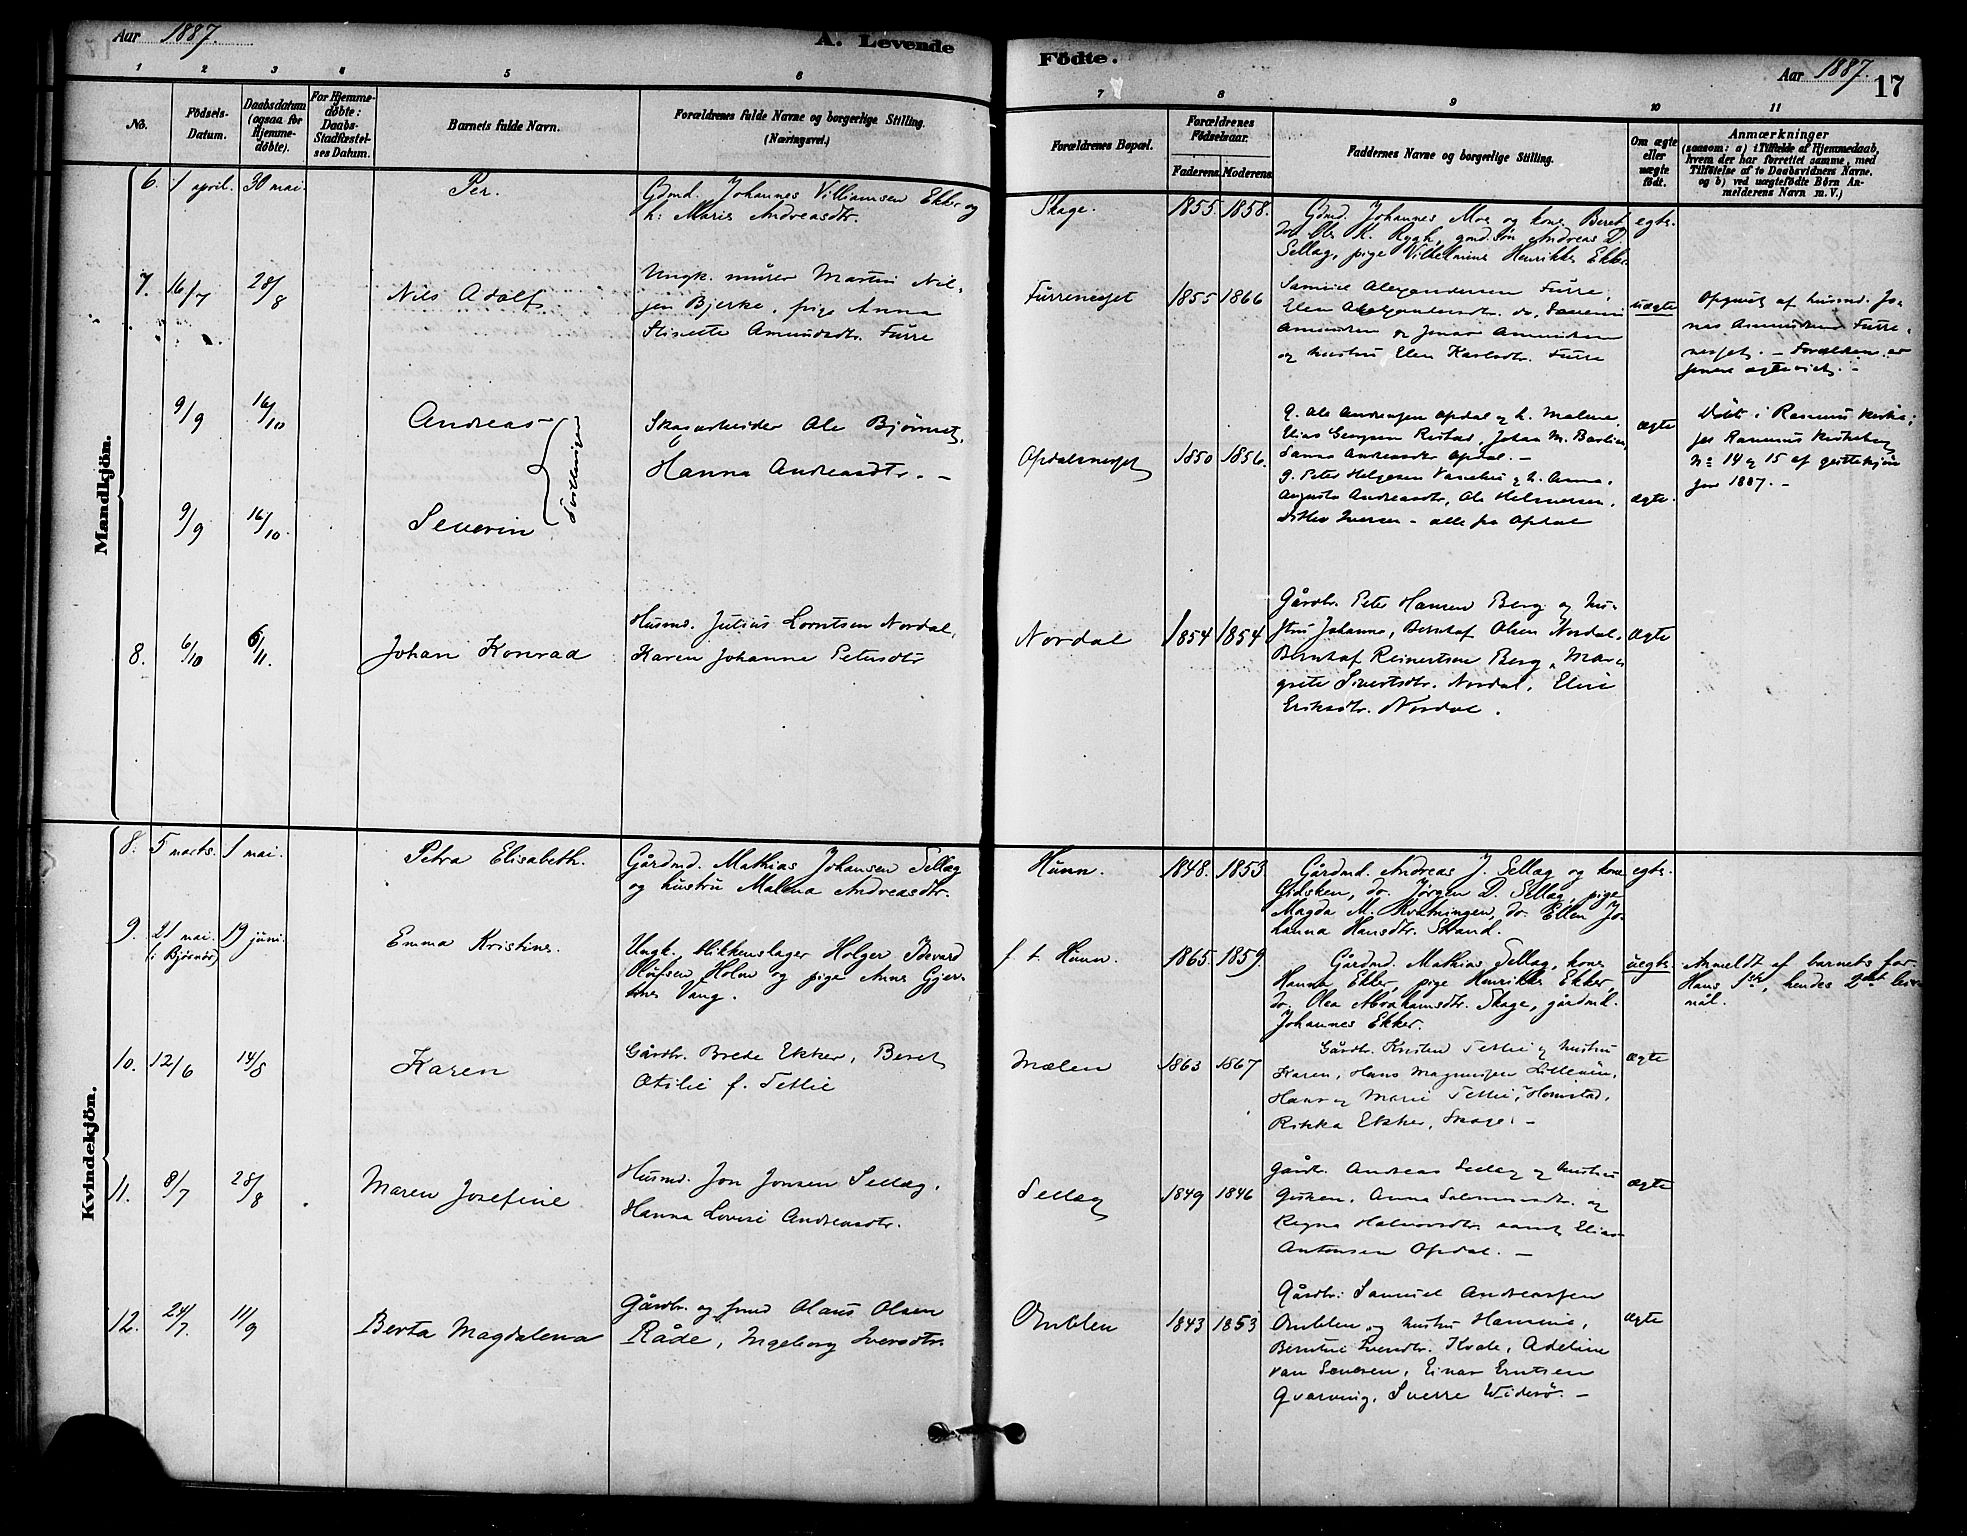 Aar 1887.
A. Levende
Födte.
Aar 1887.
17
1 2 3 4 5 6
7 8 9 10 11
No.
Födsels-
Datum.
Daabsdatum
(ogsaa for
Hjemme-
döbte).
For Hjemme-
döbte:
Daabs-
Stadfæstel-
ses Datum.
Barnets fulde Navn.
Forældrenes fulde Navne og borgerlige Stilling.
(Næringsvei.)
Forældrenes Bopæl.
Forældrenes
Födselsaar.
Faderens. Moderens.
Faddernes Navne og borgerlige Stilling.
Om ægte
eller
uægte
födt.
Anmærkninger
(saasom: a) i Tilfælde af Hjemmedaab,
hvem der har forrettet samme, med
Tilföielse af to Daabsvidners Navne.
og b) ved uægtefödte Börn An-
melderens Navn m. V.)
Mandkjön.
6. 1 april. 30 mai. Per.
Gdmd. Johannes Villiamsen Ekker og
h: Marie Andreasdtr.
Skage. 1855. 1858.
Gdmd. Johannes Moe og kone Beret
do. Ole K. Rygh, gmd.søn Andreas D.
Sellæg, pige Vilhelmine Henrikke Ekker
egte.
7. 16/7 28/8 Nils Adolf
Ungk. murer Martin Nil-
sen Bjerke, pige Anna
Stinette Amundsdtr. Furre
Furrenesset 1855 1866
Samuel Alexandersen Furre,
Elen Alexandersdtr. do,
og Jonas Amundsen
og hustru Elen Karlsdtr. Furre
uægte
Opgivet af husmd. Jo-
nas Amundsen Furre-
nesset. – Forældrene er
senere ægteviet. –
9/9 16/10 Andreas
Tvillinger
9/9 16/10. Severin
Skogarbeider Ole Bjørnset,
Hanna Andreasdtr. –
Opdalsnesset 1850 1856.
G. Ole Andreassen Opdal og h. Malene,
Elias Johan M.
Sanna Andreasdtr Opdal. –
G. Peter Helgesen og h. Anna,
Augusta Andreasdtr, Ole Helmersen,
Iversen – alle fra Opdal
ægte
ægte.
Døbt i Ranems kirke;
se Ranems kirkebog
No 14 og 15 af guttekjøn
for 1887. –
8. 6/10 6/11. Johan Konrad
Husmd. Julius Lorntsen Nordal,
Karen Johanna Petersdtr
Nordal 1854 1854
Gårdbr. Peter Hansen Berg og hu-
stru Johanna, Bernhof Olsen Nordal,
Bernhof Reinertsen Berg, Mar-
grete Sivertsdtr. Nordal, Eline
Eriksdtr. Nordal.
Ægte
Kvindekjön.
8. 5 marts. 1 mai. Petra Elisabeth.
Gårdmd. Mathias Johansen Sellæg
og hustru Malena Andreasdtr.
Hunn. 1848. 1853.
Gårdmd. Andreas J. Sellæg og kone
Gidsken, do. Jørgen D. Sellæg, pige
Magda M. Kvatningen, do. Ellen Jo-
hanna Hansdtr. Strand.
egte.
9. 21 mai. 19 juni. Emma Kristine.
(i Bjørnør)
Ungk. blikkenslager Holger Edvard
Olufsen Holm og pige Anne Gjer-
tine Vang.
f. t. Hunn. 1865. 1859.
Gårdmd. Mathias Sellæg, kone
Hanna Ekker, pige Henrikke Ekker,
do. Olea Abrahamsdtr. Skage, gårdmd.
Johannes Ekker.
uegte.
Anmeldt af barnets far.
Hans 1ste, hendes 2det leier-
mål.
10. 12/6 14/8 Karen
Gårdbr. Brede Ekker, Beret
Otilie f. Tetlie
Mælen 1863 1867
Gårdbr. Kristen Tetlie og hustru
Karen, Hans Magnussen
Hans og Marie Tetlie, Homstad,
Rikka Ekker, Skage. –
ægte
11. 8/7 28/8 Maren Josefine
Husmd. Jon Jonsen Sellæg,
Hanna Lovise Andreasdtr.
Sellæg 1849 1846
Gårdbr. Andreas Sellæg og hustru
Gisken, Anna Salomonsdtr. og
Regna Halvorsdtr. samt Elias
Antonsen Opdal. –
ægte
12. 24/7. 11/9 Berta Magdalena
Gårdbr. og smed Olaus Olsen
Råde, Ingeborg Iversdtr.
Amblen 1843 1853
Gårdbr. Samuel Andreassen
Amblen og hustru Hansine,
Kvale, Adeline
van Severen, Einar Erntsen
Qvarving, Sverre Widerø. –
ægte